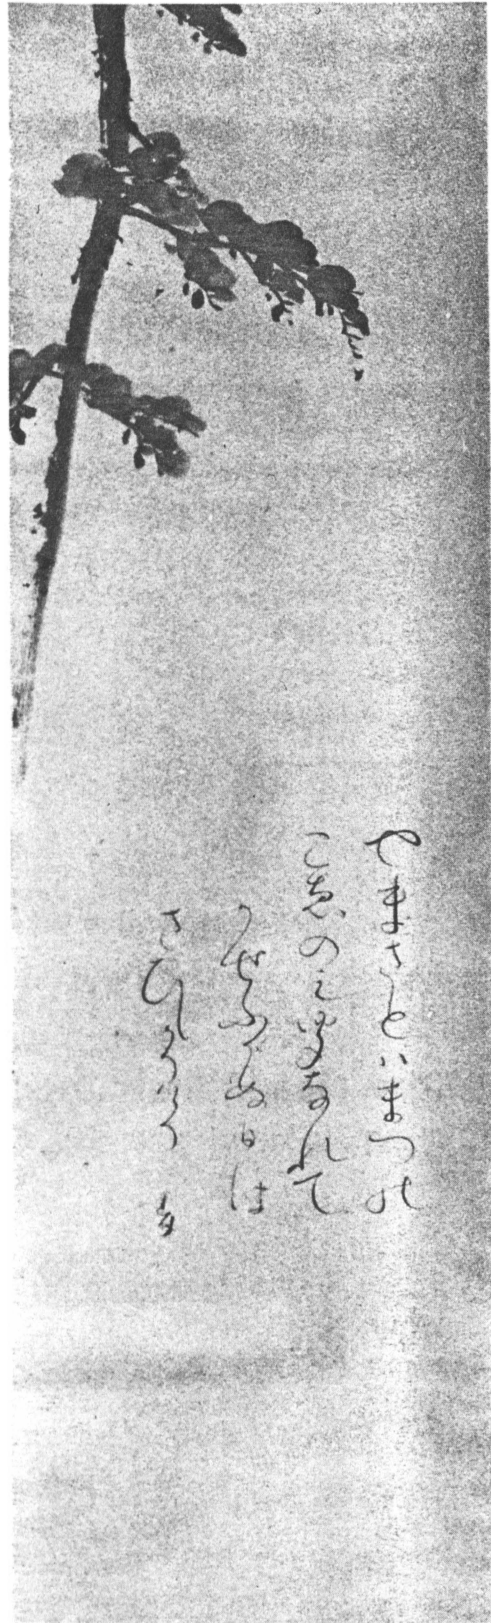 やまさとハまつの
こゑのミ聞なれて
かせふかぬ日は
さひしかりけり